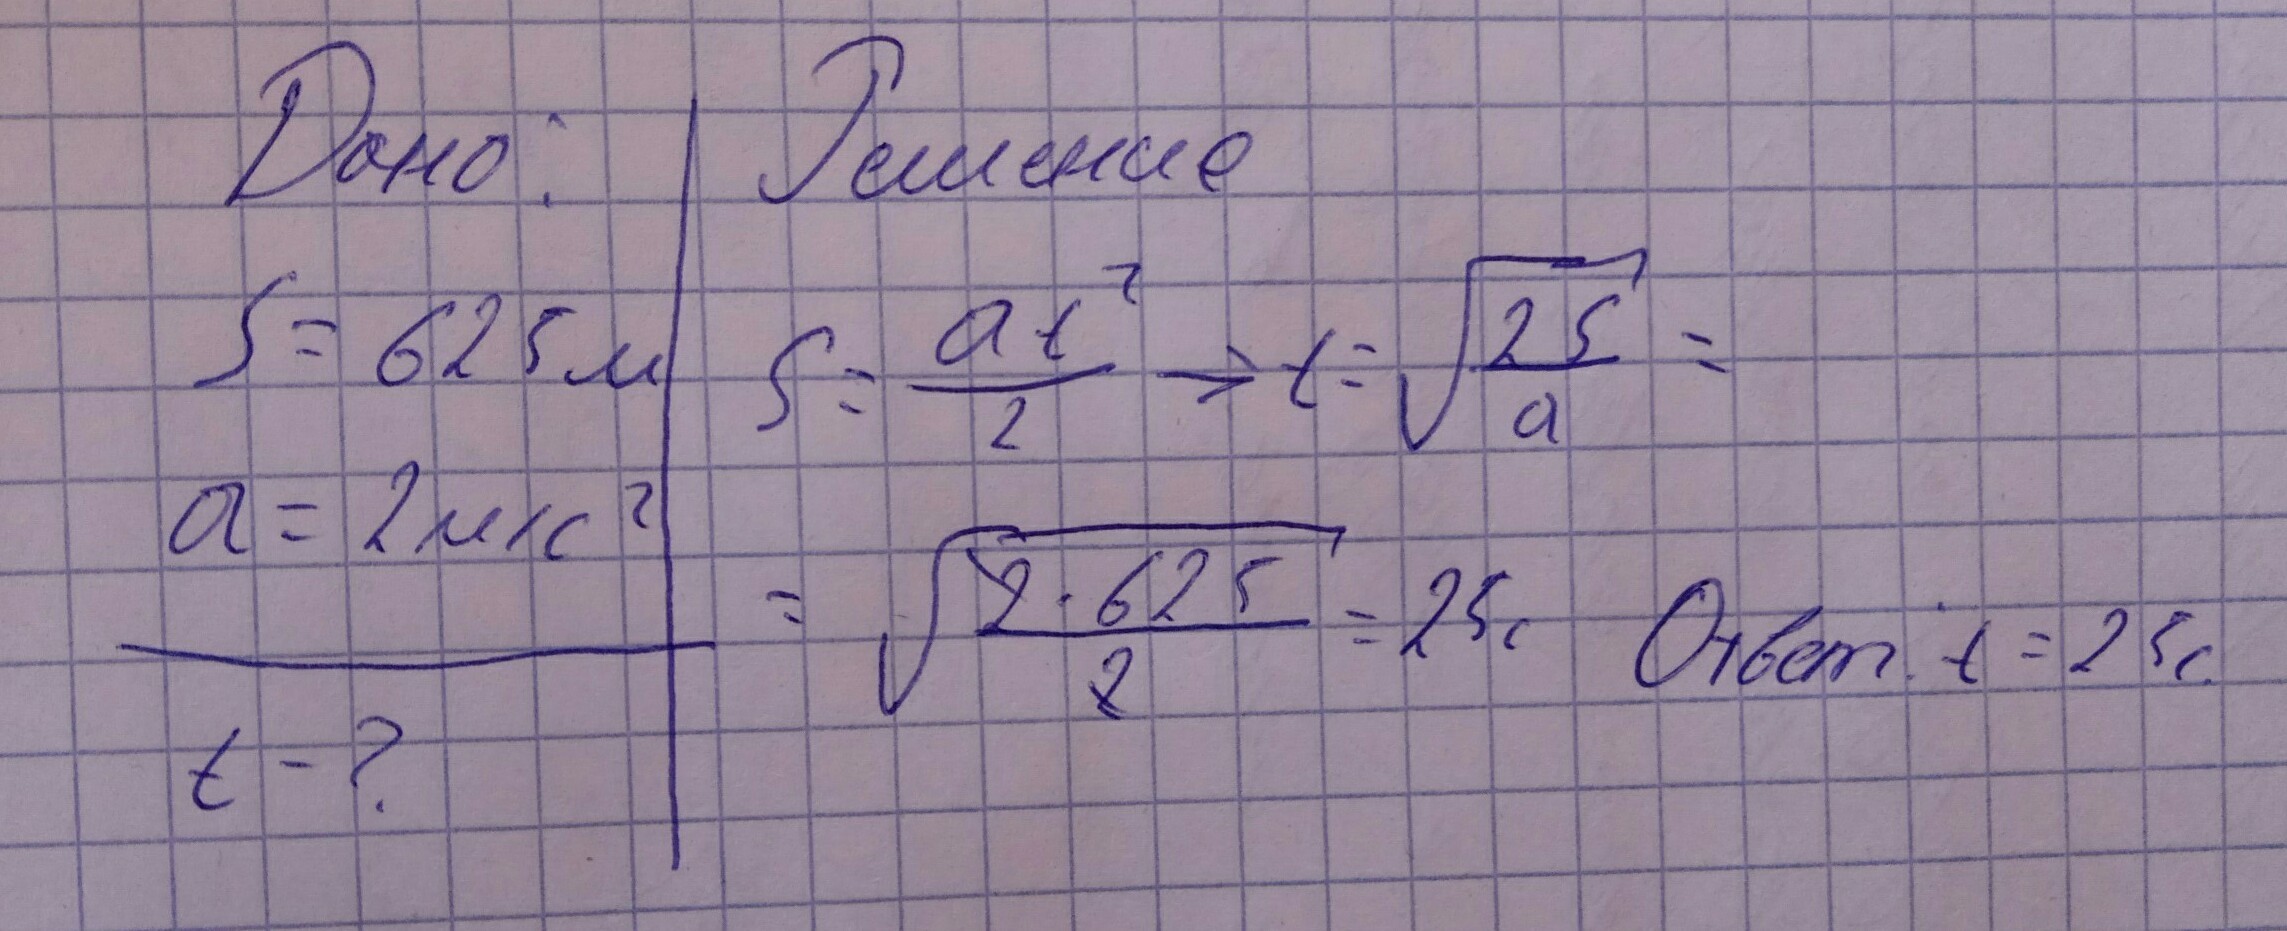 Дано:
S = 625 м
a = 2 м/с²
t - ?
Решение
S = at²/2 → t = √(2S/a) =
= √(2·625/2) = 25с Ответ: t = 25с.